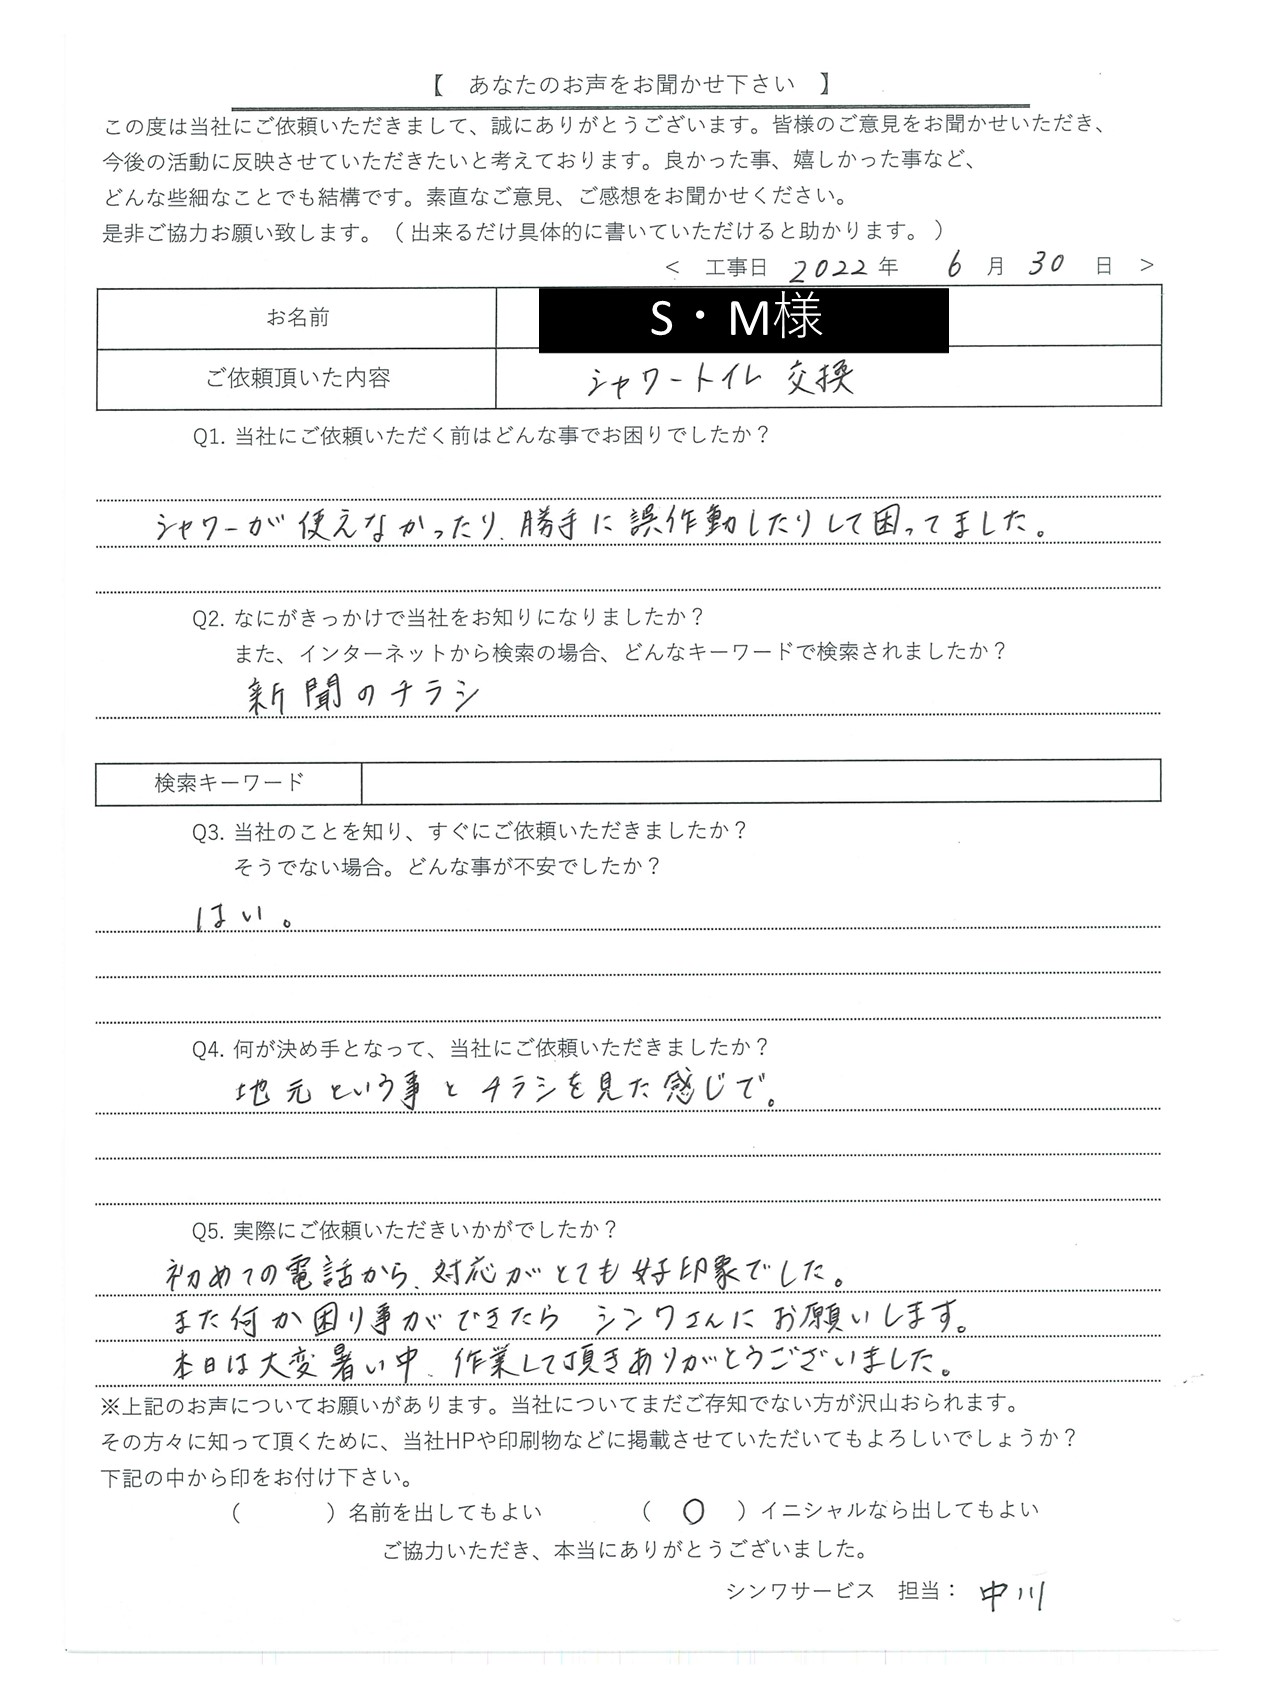 【　あなたのお声をお聞かせ下さい　】
この度は当社にご依頼いただきまして、誠にありがとうございます。皆様のご意見をお聞かせいただき、
今後の活動に反映させていただきたいと考えております。良かった事、嬉しかった事など、
どんな些細なことでも結構です。素直なご意見、ご感想をお聞かせください。
是非ご協力お願い致します。（ 出来るだけ具体的に書いていただけると助かります。 ）
＜　工事日　2022 年　6 月　30 日　＞
お名前　S・M様
ご依頼頂いた内容　シャワートイレ 交換
Q1. 当社にご依頼いただく前はどんな事でお困りでしたか？
シャワーが使えなかったり、勝手に誤作動したりして困ってました。
Q2. なにがきっかけで当社をお知りになりましたか？
また、インターネットから検索の場合、どんなキーワードで検索されましたか？
新聞のチラシ
検索キーワード
Q3. 当社のことを知り、すぐにご依頼いただきましたか？
そうでない場合。どんな事が不安でしたか？
はい。
Q4. 何が決め手となって、当社にご依頼いただきましたか？
地元という事とチラシを見た感じで。
Q5. 実際にご依頼いただきいかがでしたか？
初めての電話から、対応がとても好印象でした。
また何か困り事ができたら シンワさんにお願いします。
本日は大変暑い中、作業して頂きありがとうございました。
※上記のお声についてお願いがあります。当社についてまだご存知でない方が沢山おられます。
その方々に知って頂くために、当社HPや印刷物などに掲載させていただいてもよろしいでしょうか？
下記の中から印をお付け下さい。
（　　　）名前を出してもよい　　（　○　）イニシャルなら出してもよい
ご協力いただき、本当にありがとうございました。
シンワサービス　担当： 中川